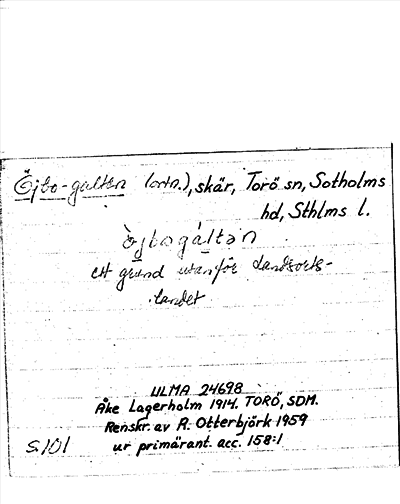 Öjbo-galten (ortn.), skär, Torö sn, Sotholms
hd, Sthlms l.
ö̀jbogáltən
ett grund utanför Landsorts-
landet
ULMA 24698
Åke Lagerholm 1914. TORÖ, SDM.
Renskr. av R. Otterbjörk 1959
ur primärant. acc. 158:1
S.101